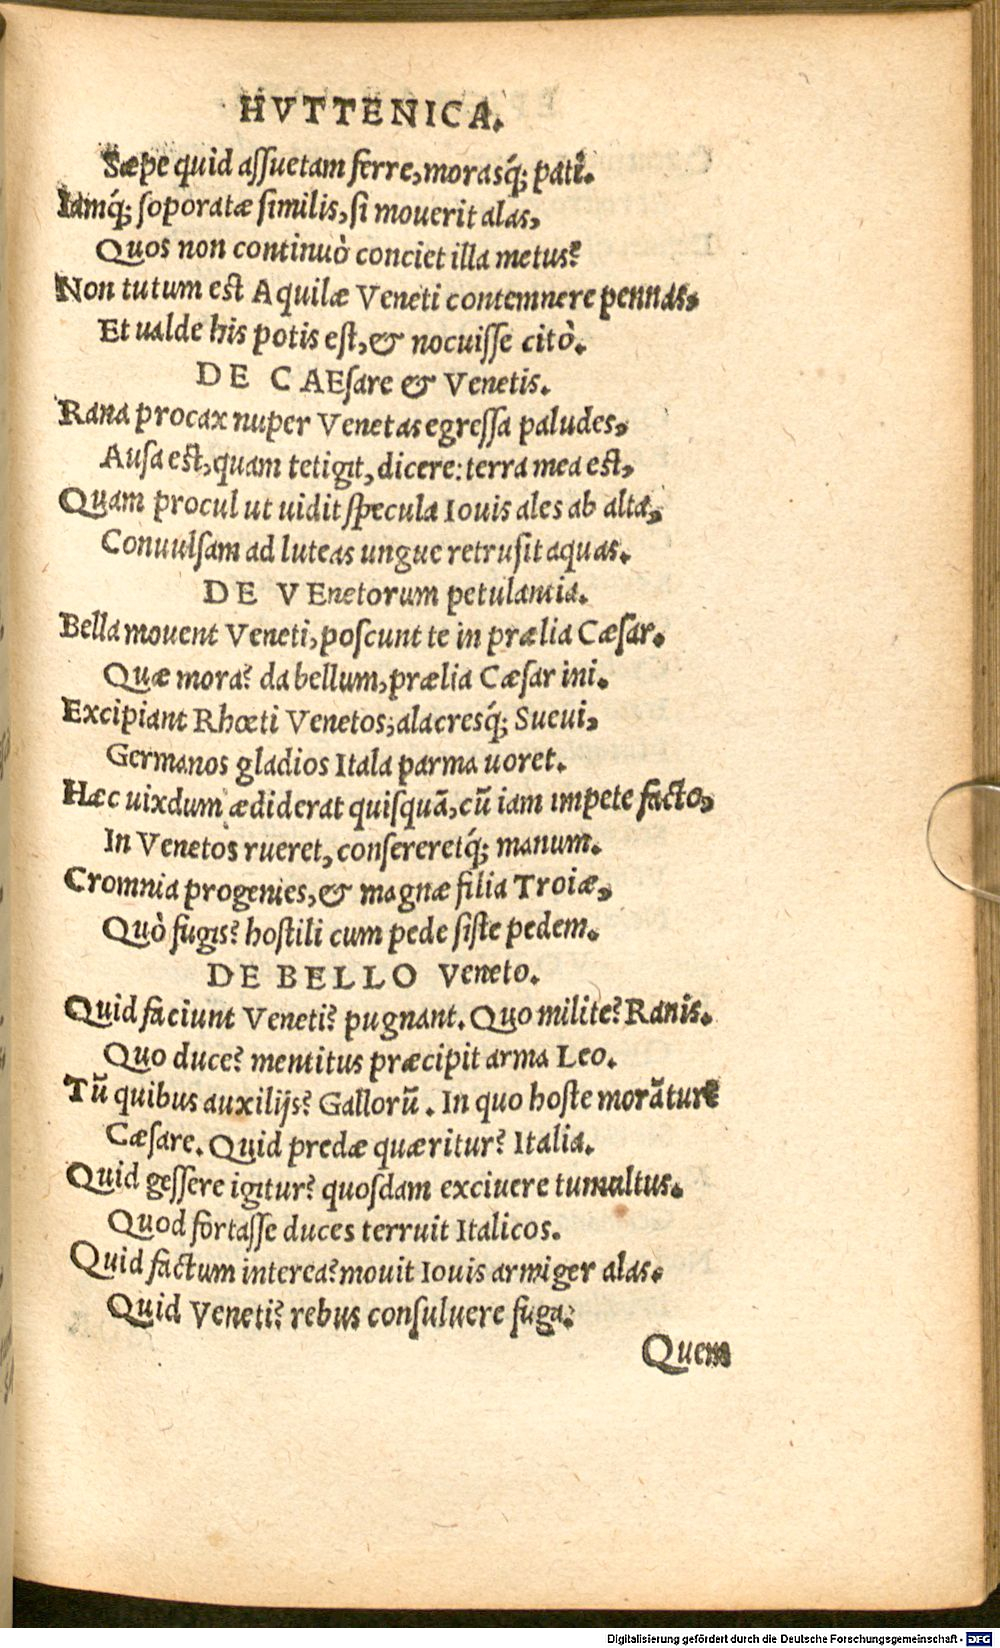 HVTTENICA.
Sæpe quid aſſuetam ferre, morasq́; pati.
Iamq́; ſoporatæ ſimilis, ſi mouerit alas,
Quos non continuò conciet illa metus?
Non tutum eſt Aquilæ Veneti contemnere pennas,
Et ualde his potis eſt, & nocuiſſe citò.
DE CAEſare & Venetis.
Rana procax nuper Venetas egreſſa paludes,
Auſa eſt, quam tetigit, dicere: terra mea eſt,
Quam procul ut uidit ſpecula Iouis ales ab alta,
Conuulſam ad luteas ungue retruſit aquas.
DE VEnetorum petulantia.
Bella mouent Veneti, poſcunt te in prælia Cæſar.
Quæ mora? da bellum, prælia Cæſar ini.
Excipiant Rhœti Venetos; alacresq́; Sueui,
Germanos gladios Itala parma uoret.
Hæc uixdum ædiderat quiſquā, cū iam impete facto,
In Venetos rueret, conſereretq́; manum.
Cromnia progenies, & magnæ filia Troiæ,
Quò fugis? hoſtili cum pede ſiſte pedem.
DE BELLO Veneto.
Quid faciunt Veneti? pugnant. Quo milite? Ranis.
Quo duce? mentitus præcipit arma Leo.
Tū quibus auxilijs? Gallorū. In quo hoſte morātur?
Cæſare. Quid predæ quæritur? Italia.
Quid geſſere igitur? quoſdam exciuere tumultus.
Quod fortaſſe duces terruit Italicos.
Quid factum interea? mouit Iouis armiger alas.
Quid Veneti? rebus conſuluere fuga.
Quem
Digitalisierung gefördert durch die Deutsche Forschungsgemeinschaft - DFG